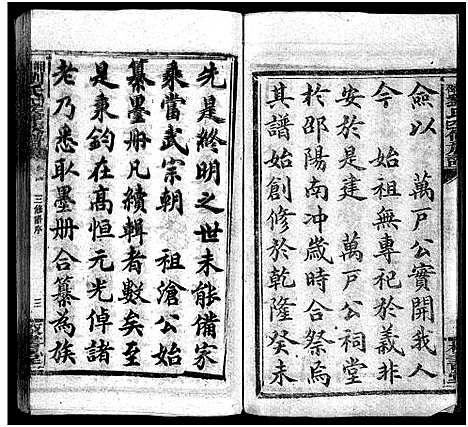 僉以 萬戸公實開我人
今 始祖無專祀於義非
安於是建 萬戸公祠堂
於邵陽南冲歲時合祭焉
其譜始創修於乾隆癸未
先是終明之世未能備家
乘當武宗朝 祖滄公始
纂墨册凡續輯者數矣至
是秉鈞在高恒元光倬諸
老乃悉取墨册合纂為族
三修譜序
三